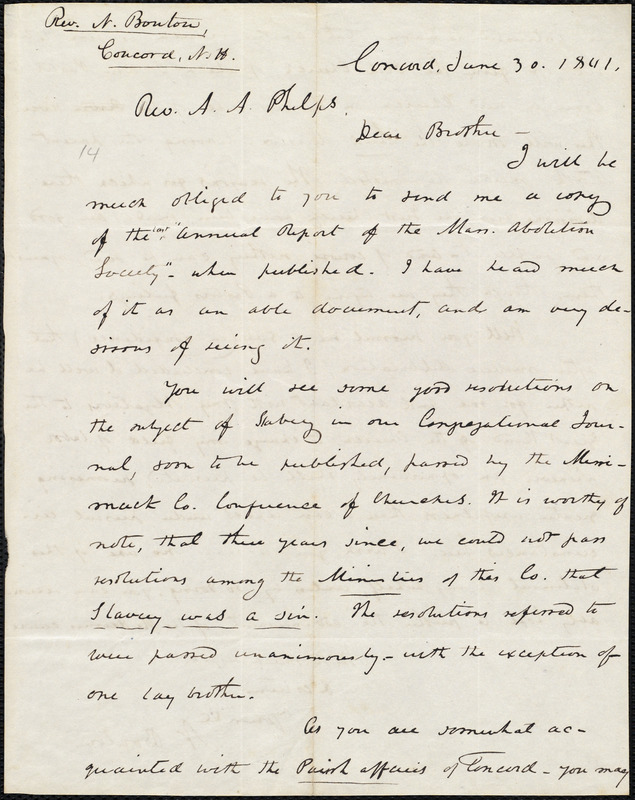 Rev. N. Bouton,
Concord, N.H.
Concord, June 30. 1841.
Rev. A. A. Phelps.
Dear Brother –
14
I will be
much obliged to you to send me a copy
of the last "Annual Report of the Mass. Abolition
Society" – when published. I have heard much
of it as an able document, and am very de-
sirous of seeing it.
You will see some good resolutions on
the subject of Slavery in our Congregational Jour-
nal, soon to be published, passed by the Merri-
mack Co. Conference of Churches. It is worthy of
note, that three years since, we could not pass
resolutions among the Ministers of this Co. that
Slavery was a sin. The resolutions referred to
were passed unanimously – with the exception of
one lay brother.
As you are somewhat ac-
quainted with the Parish affairs of Concord – you may